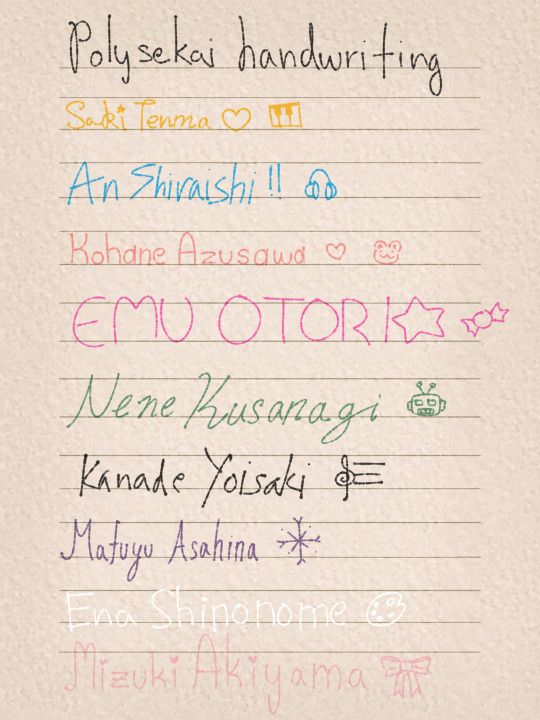 Polysekai handwriting
Saki Tenma ♡
An Shiraishi !!
Kohane Azusawa ♡
EMU OTORI☆
Nene Kusanagi
Kanade Yoisaki
Mafuyu Asahina
Ena Shinonome
Mizuki Akiyama